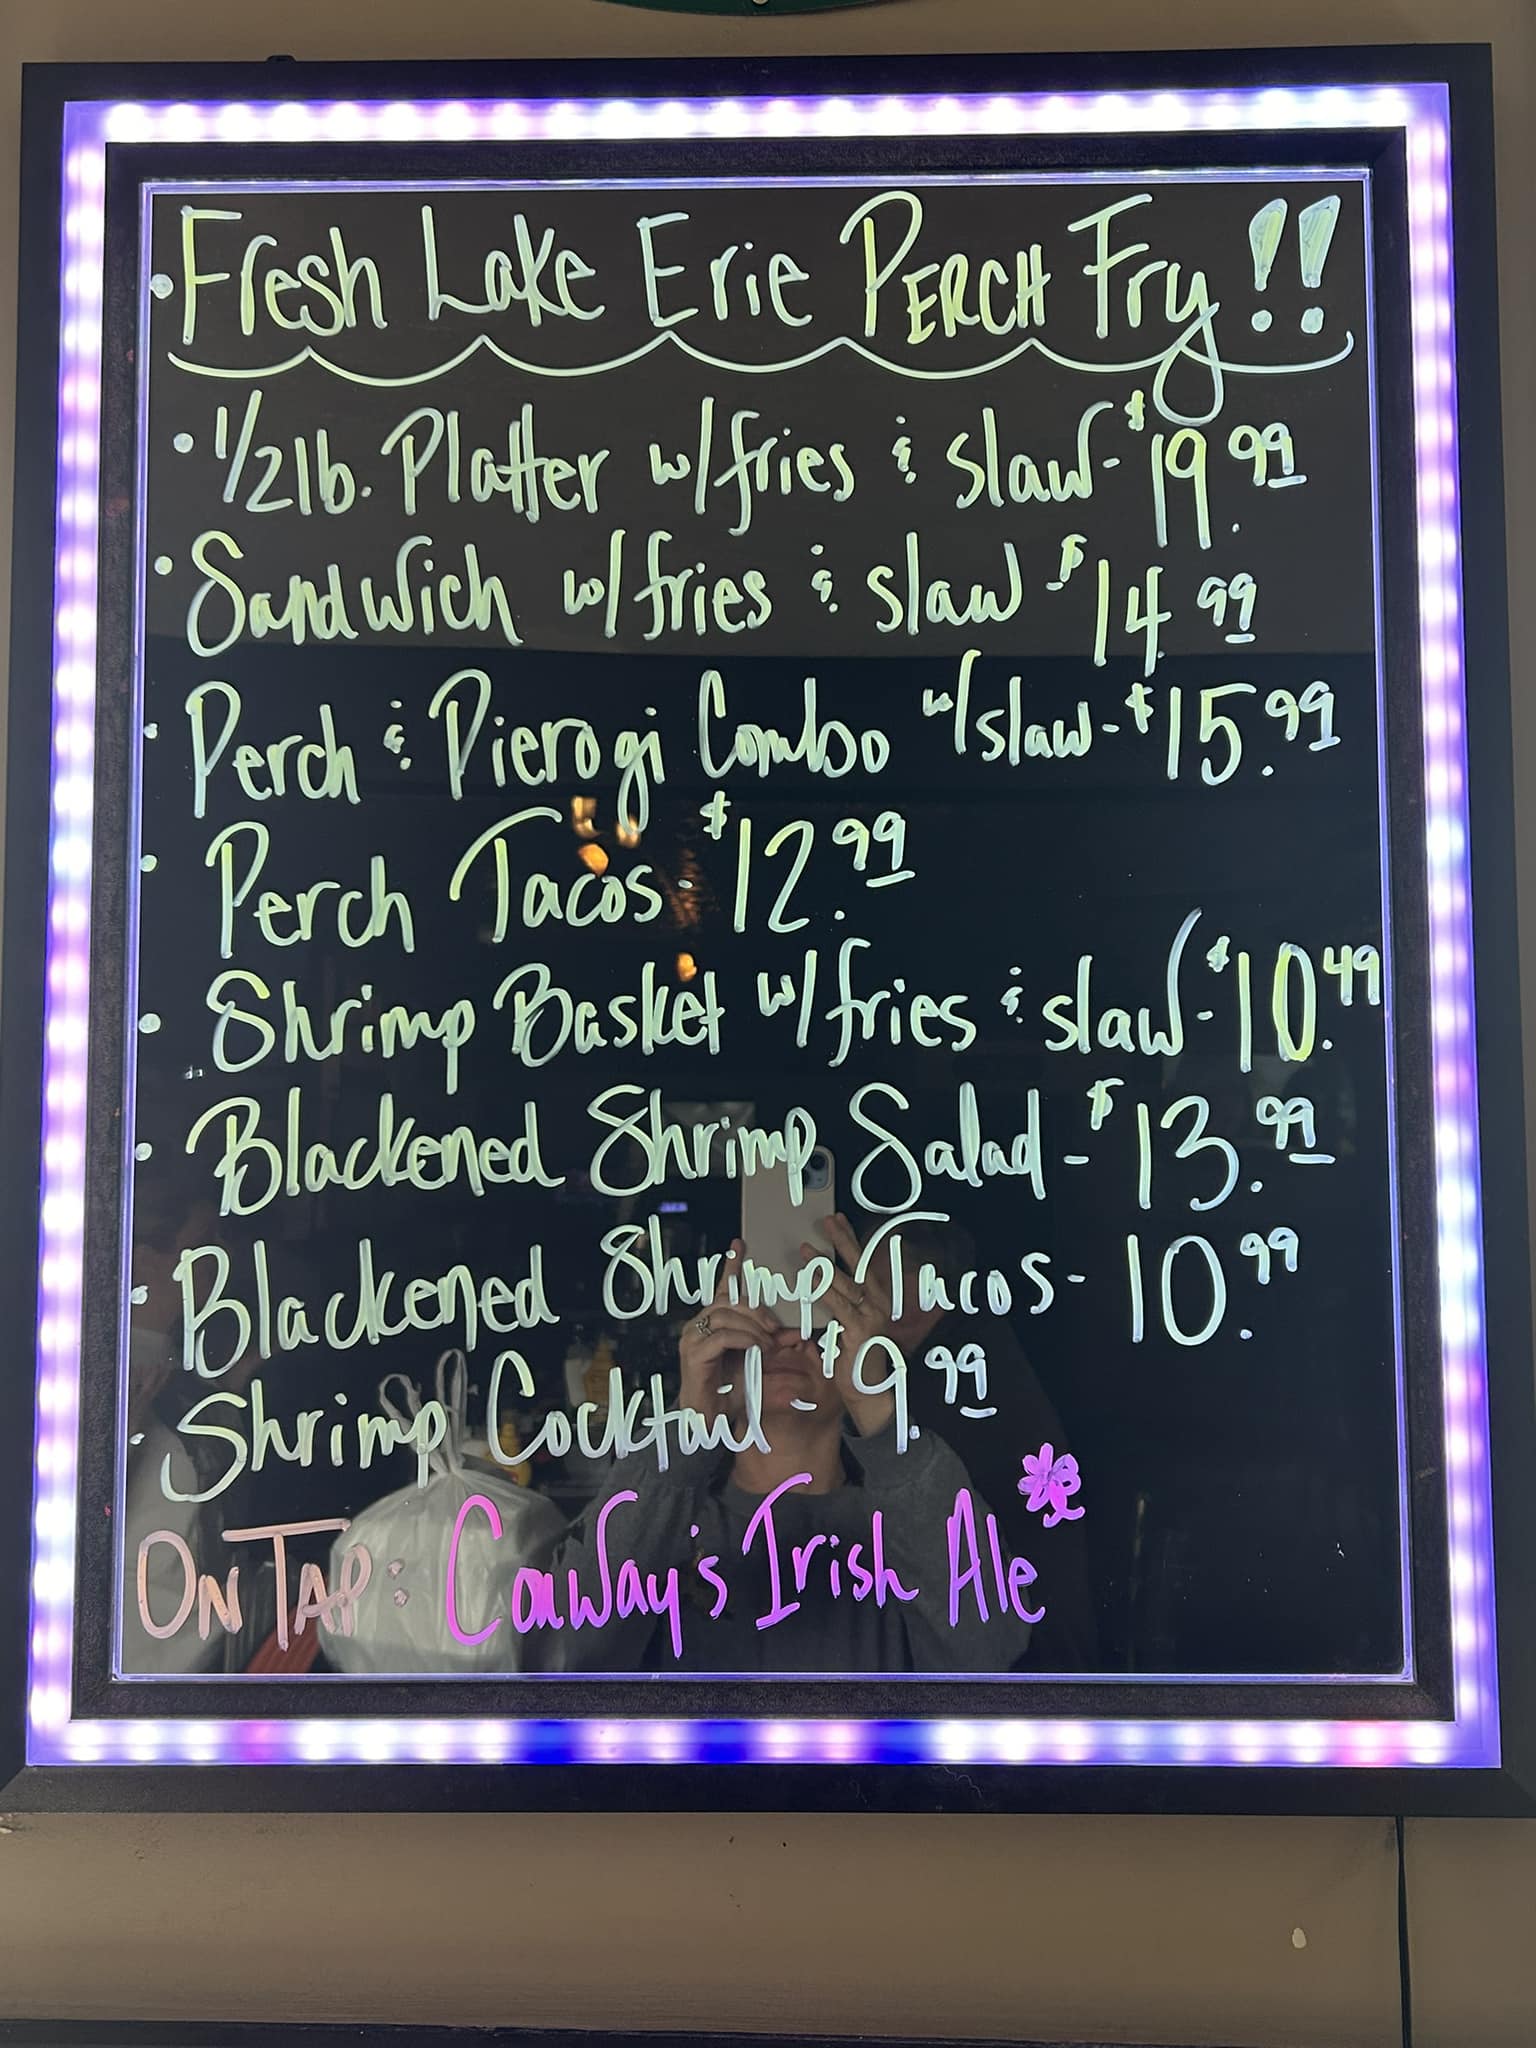 • Fresh Lake Erie PERCH Fry!!
• 1/2 lb. Platter w/fries & slaw - $19.99
• Sandwich w/fries & slaw $14.99
• Perch & Pierogi Combo w/slaw - $15.99
• Perch Tacos - $12.99
• Shrimp Basket w/fries & slaw - $10.49
• Blackened Shrimp Salad - $13.99
• Blackened Shrimp Tacos - 10.99
• Shrimp Cocktail - $9.99
ON TAP: Conway's Irish Ale